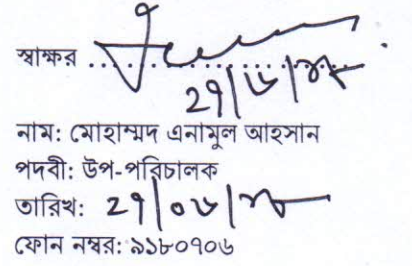 স্বাক্ষর ..............................
২৭|৬|১৮
নাম: মোহাম্মদ এনামুল আহসান
পদবী: উপ-পরিচালক
তারিখ: ২৭|০৬|১৮
ফোন নম্বর: ৯১৮০৭০৬